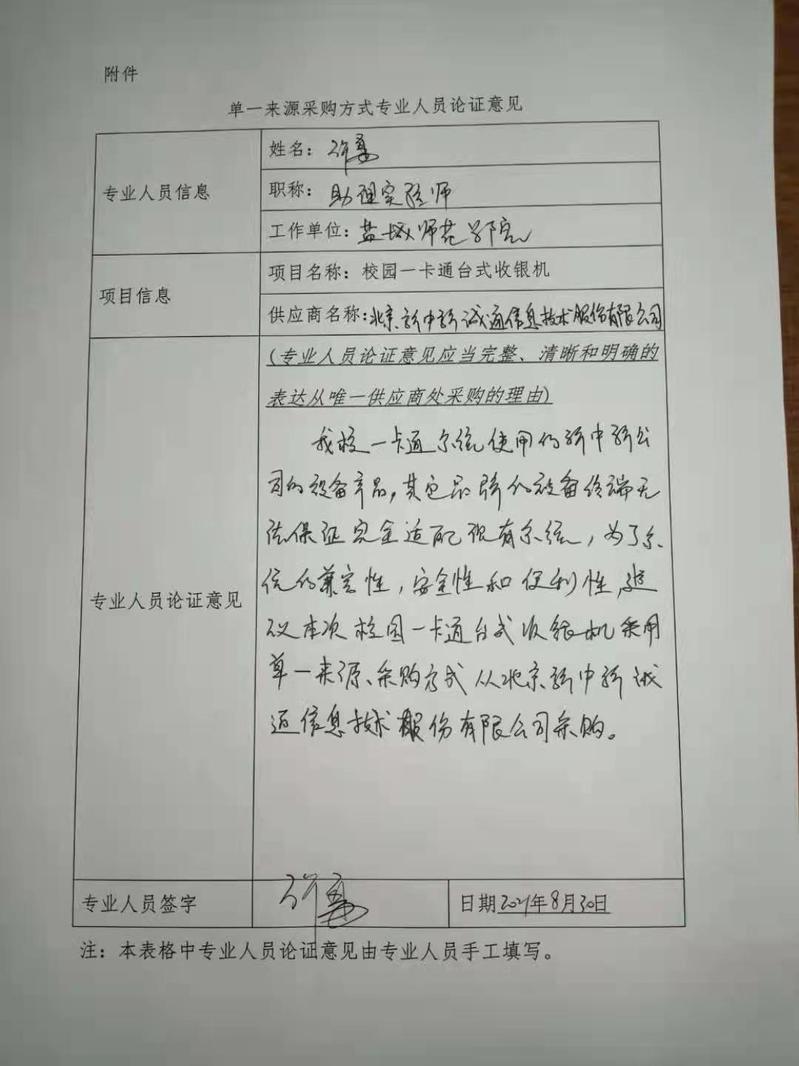 附件
单一来源采购方式专业人员论证意见
专业人员信息
姓名：
职称：助理实验师
工作单位：盐城师范学院
项目信息
项目名称：校园一卡通台式收银机
供应商名称：北京新中新诚通信息技术股份有限公司
专业人员论证意见
(专业人员论证意见应当完整、清晰和明确的
表达从唯一供应商处采购的理由)
我校一卡通系统使用的新中新公
司的设备产品，其它品牌的设备终端无
法保证完全适配现有系统，为了系
统的兼容性，安全性和便利性，建
议本次校园一卡通台式收银机采用
单一来源采购方式从北京新中新诚
通信息技术股份有限公司采购。
专业人员签字
日期2021年8月30日
注：本表格中专业人员论证意见由专业人员手工填写。